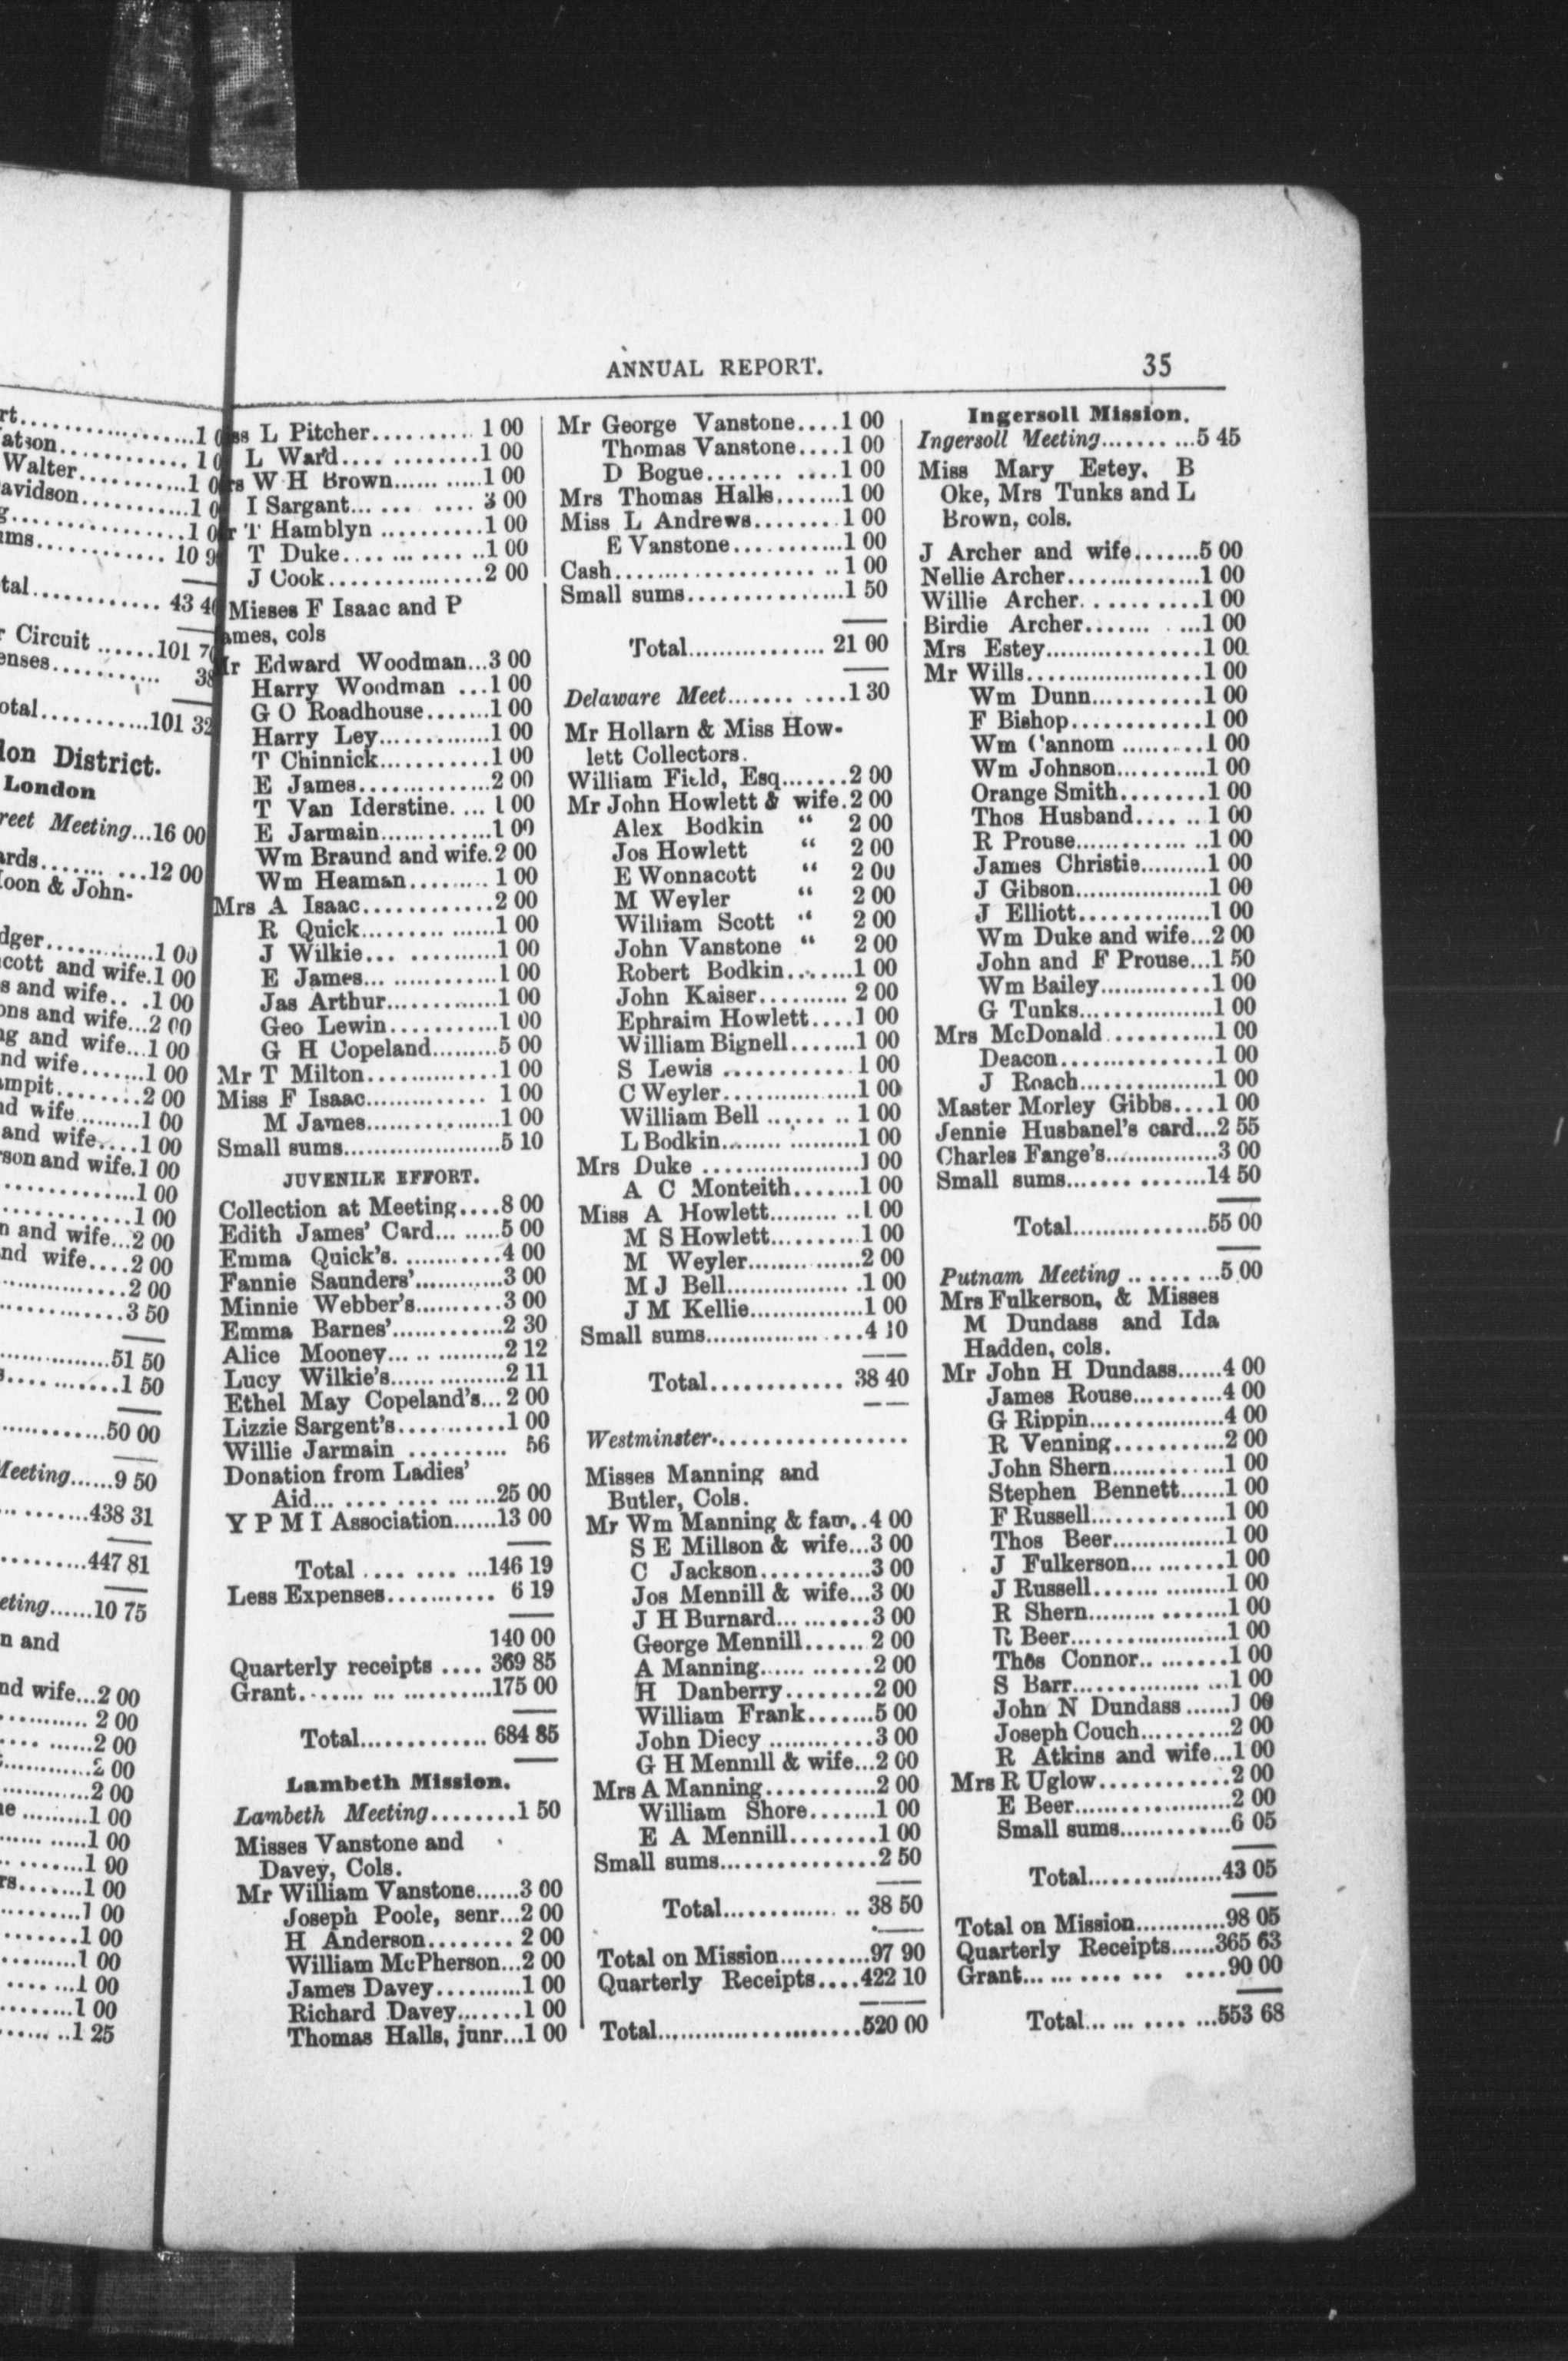 rt.................1
atson............10
Walter...........1 0
avidson..........1 0
g................1 0
ums............10 9
tal............43 4
r Circuit......101 7
enses........... 38
otal...........101 32
lon District.
London
reet Meeting...16 00
ards..........12 00
loon & John-
dger............1 00
cott and wife.1 00
s and wife...1 00
ons and wife...2 00
ng and wife...1 00
nd wife.......1 00
ampit........2 00
nd wife.........1 00
and wife....1 00
son and wife.1 00
.............1 00
............1 00
n and wife...2 00
nd wife....2 00
.............2 00
.............3 50
.............51 50
s............1 50
............50 00
Meeting......9 50
...........438 31
..........447 81
eting......10 75
n and
nd wife...2 00
..........2 00
..........2 00
...........2 00
...........2 00
ne.........1 00
...........1 00
.........1 00
rs........1 00
.........1 00
........1 00
.........1 00
.........1 00
........1 00
.........1 25
ANNUAL REPORT. 35
ss L Pitcher..........1 00
L Ward.............1 00
rs W H Brown...........1 00
I Sargant..........3 00
r T Hamblyn..........1 00
T Duke............1 00
J Cook..............2 00
Misses F Isaac and P
ames, cols
Mr Edward Woodman...3 00
Harry Woodman...1 00
G O Roadhouse.......1 00
Harry Ley............1 00
T Chinnick...........1 00
E James.............2 00
T Van Iderstine....1 00
E Jarmain............1 00
Wm Braund and wife.2 00
Wm Heaman.........1 00
Mrs A Isaac............2 00
R Quick.............1 00
J Wilkie.............1 00
E James............1 00
Jas Arthur...........1 00
Geo Lewin...........1 00
G H Copeland.........5 00
Mr T Milton.............1 00
Miss F Isaac.............1 00
M James.............1 00
Small sums.....................5 10
JUVENILE EFFORT.
Collection at Meeting....8 00
Edith James' Card.........5 00
Emma Quick's...........4 00
Fannie Saunders'............3 00
Minnie Webber's..........3 00
Emma Barnes'.............2 30
Alice Mooney..............2 12
Lucy Wilkie's...............2 11
Ethel May Copeland's...2 00
Lizzie Sargent's...........1 00
Willie Jarmain.......... 56
Donation from Ladies'
Aid....................25 00
Y P M I Association......13 00
Total.............146 19
Less Expenses........... 6 19
140 00
Quarterly receipts....369 85
Grant....................175 00
Total.............684 85
Lambeth Mission.
Lambeth Meeting........1 50
Misses Vanstone and
Davey, Cols.
Mr William Vanstone......3 00
Joseph Poole, senr...2 00
H Anderson........2 00
William McPherson...2 00
James Davey..........1 00
Richard Davey.......1 00
Thomas Halls, junr...1 00
Mr George Vanstone....1 00
Thomas Vanstone....1 00
D Bogue...........1 00
Mrs Thomas Halls.......1 00
Miss L Andrews........1 00
E Vanstone...........1 00
Cash......................1 00
Small sums...............1 50
Total................21 00
Delaware Meet...........1 30
Mr Hollarn & Miss How-
lett Collectors.
William Field, Esq.......2 00
Mr John Howlett & wife.2 00
Alex Bodkin " 2 00
Jos Howlett " 2 00
E Wonnacott " 2 00
M Weyler " 2 00
William Scott " 2 00
John Vanstone " 2 00
Robert Bodkin........1 00
John Kaiser..........2 00
Ephraim Howlett....1 00
William Bignell.......1 00
S Lewis............1 00
C Weyler..............1 00
William Bell.........1 00
L Bodkin.................1 00
Mrs Duke..................1 00
A C Monteith.......1 00
Miss A Howlett...........1 00
M S Howlett..........1 00
M Weyler............2 00
M J Bell................1 00
J M Kellie..............1 00
Small sums..................4 10
Total............38 40
Westminster..................
Misses Manning and
Butler, Cols.
Mr Wm Manning & fam..4 00
S E Millson & wife...3 00
C Jackson...........3 00
Jos Mennill & wife...3 00
J H Burnard..........3 00
George Mennill......2 00
A Manning............2 00
H Danberry........2 00
William Frank.......5 00
John Diecy...........3 00
G H Mennill & wife...2 00
Mrs A Manning...........2 00
William Shore.......1 00
E A Mennill........1 00
Small sums...............2 50
Total..............38 50
Total on Mission.........97 90
Quarterly Receipts....422 10
Total......................520 00
Ingersoll Mission.
Ingersoll Meeting..........5 45
Miss Mary Estey, B
Oke, Mrs Tunks and L
Brown, cols.
J Archer and wife.......5 00
Nellie Archer.............1 00
Willie Archer...........1 00
Birdie Archer..........1 00
Mrs Estey.................1 00
Mr Wills...................1 00
Wm Dunn...........1 00
F Bishop............1 00
Wm Cannom.........1 00
Wm Johnson..........1 00
Orange Smith........1 00
Thos Husband......1 00
R Prouse..............1 00
James Christie.........1 00
J Gibson.................1 00
J Elliott..............1 00
Wm Duke and wife...2 00
John and F Prouse...1 50
Wm Bailey............1 00
G Tunks...............1 00
Mrs McDonald...........1 00
Deacon...............1 00
J Roach...............1 00
Master Morley Gibbs....1 00
Jennie Husbanel's card...2 55
Charles Fange's..............3 00
Small sums................14 50
Total................55 00
Putnam Meeting.........5 00
Mrs Fulkerson, & Misses
M Dundass and Ida
Hadden, cols.
Mr John H Dundass......4 00
James Rouse..........4 00
G Rippin...............4 00
R Venning...........2 00
John Shern.............1 00
Stephen Bennett......1 00
F Russell..............1 00
Thos Beer..............1 00
J Fulkerson...........1 00
J Russell...............1 00
R Shern................1 00
R Beer....................1 00
Thos Connor..........1 00
S Barr.................1 00
John N Dundass......1 00
Joseph Couch.........2 00
R Atkins and wife...1 00
Mrs R Uglow............2 00
E Beer....................2 00
Small sums.............6 05
Total................43 05
Total on Mission............98 05
Quarterly Receipts......365 63
Grant....................90 00
Total.............553 68